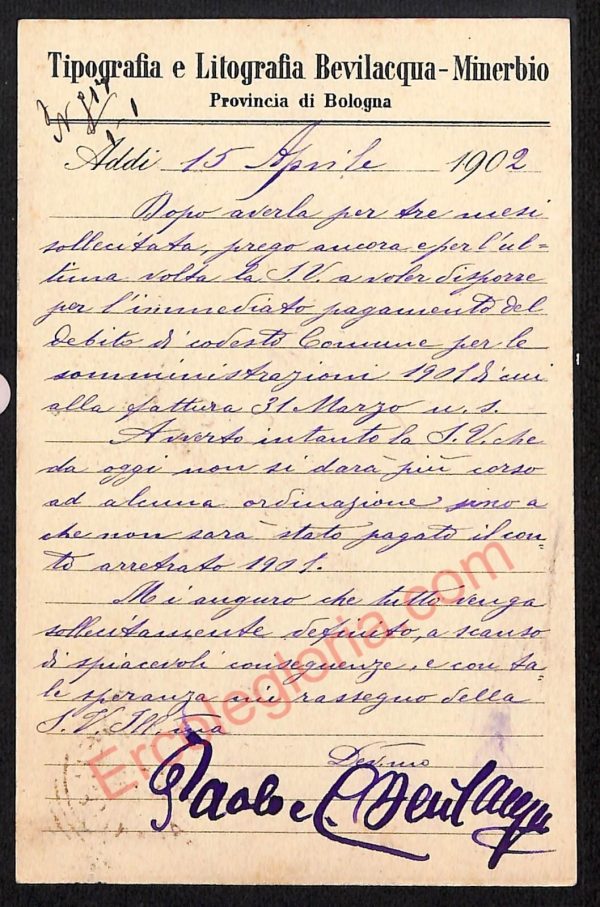 Tipografia e Litografia Bevilacqua-Minerbio
Provincia di Bologna
Addì 15 Aprile 1902
Dopo averla per tre mesi
sollecitata, prego ancora e per l'ul=
tima volta la S. V. a voler disporre
per l'immediato pagamento del
debito di codesto Comune per le
somministrazioni 1901 di cui
alla fattura 31 Marzo u. s.
Avverto intanto la S. V. che
da oggi non si darà più corso
ad alcuna ordinazione sino a
che non sarà stato pagato il con-
to arretrato 1901.
Mi auguro che tutto venga
sollecitamente definito, a scanso
di spiacevoli conseguenze, e con ta-
le speranza mi rassegno della
S. V. Ill ma
Dev.mo
Paolo Bevilacqua
Ercolegloria.com